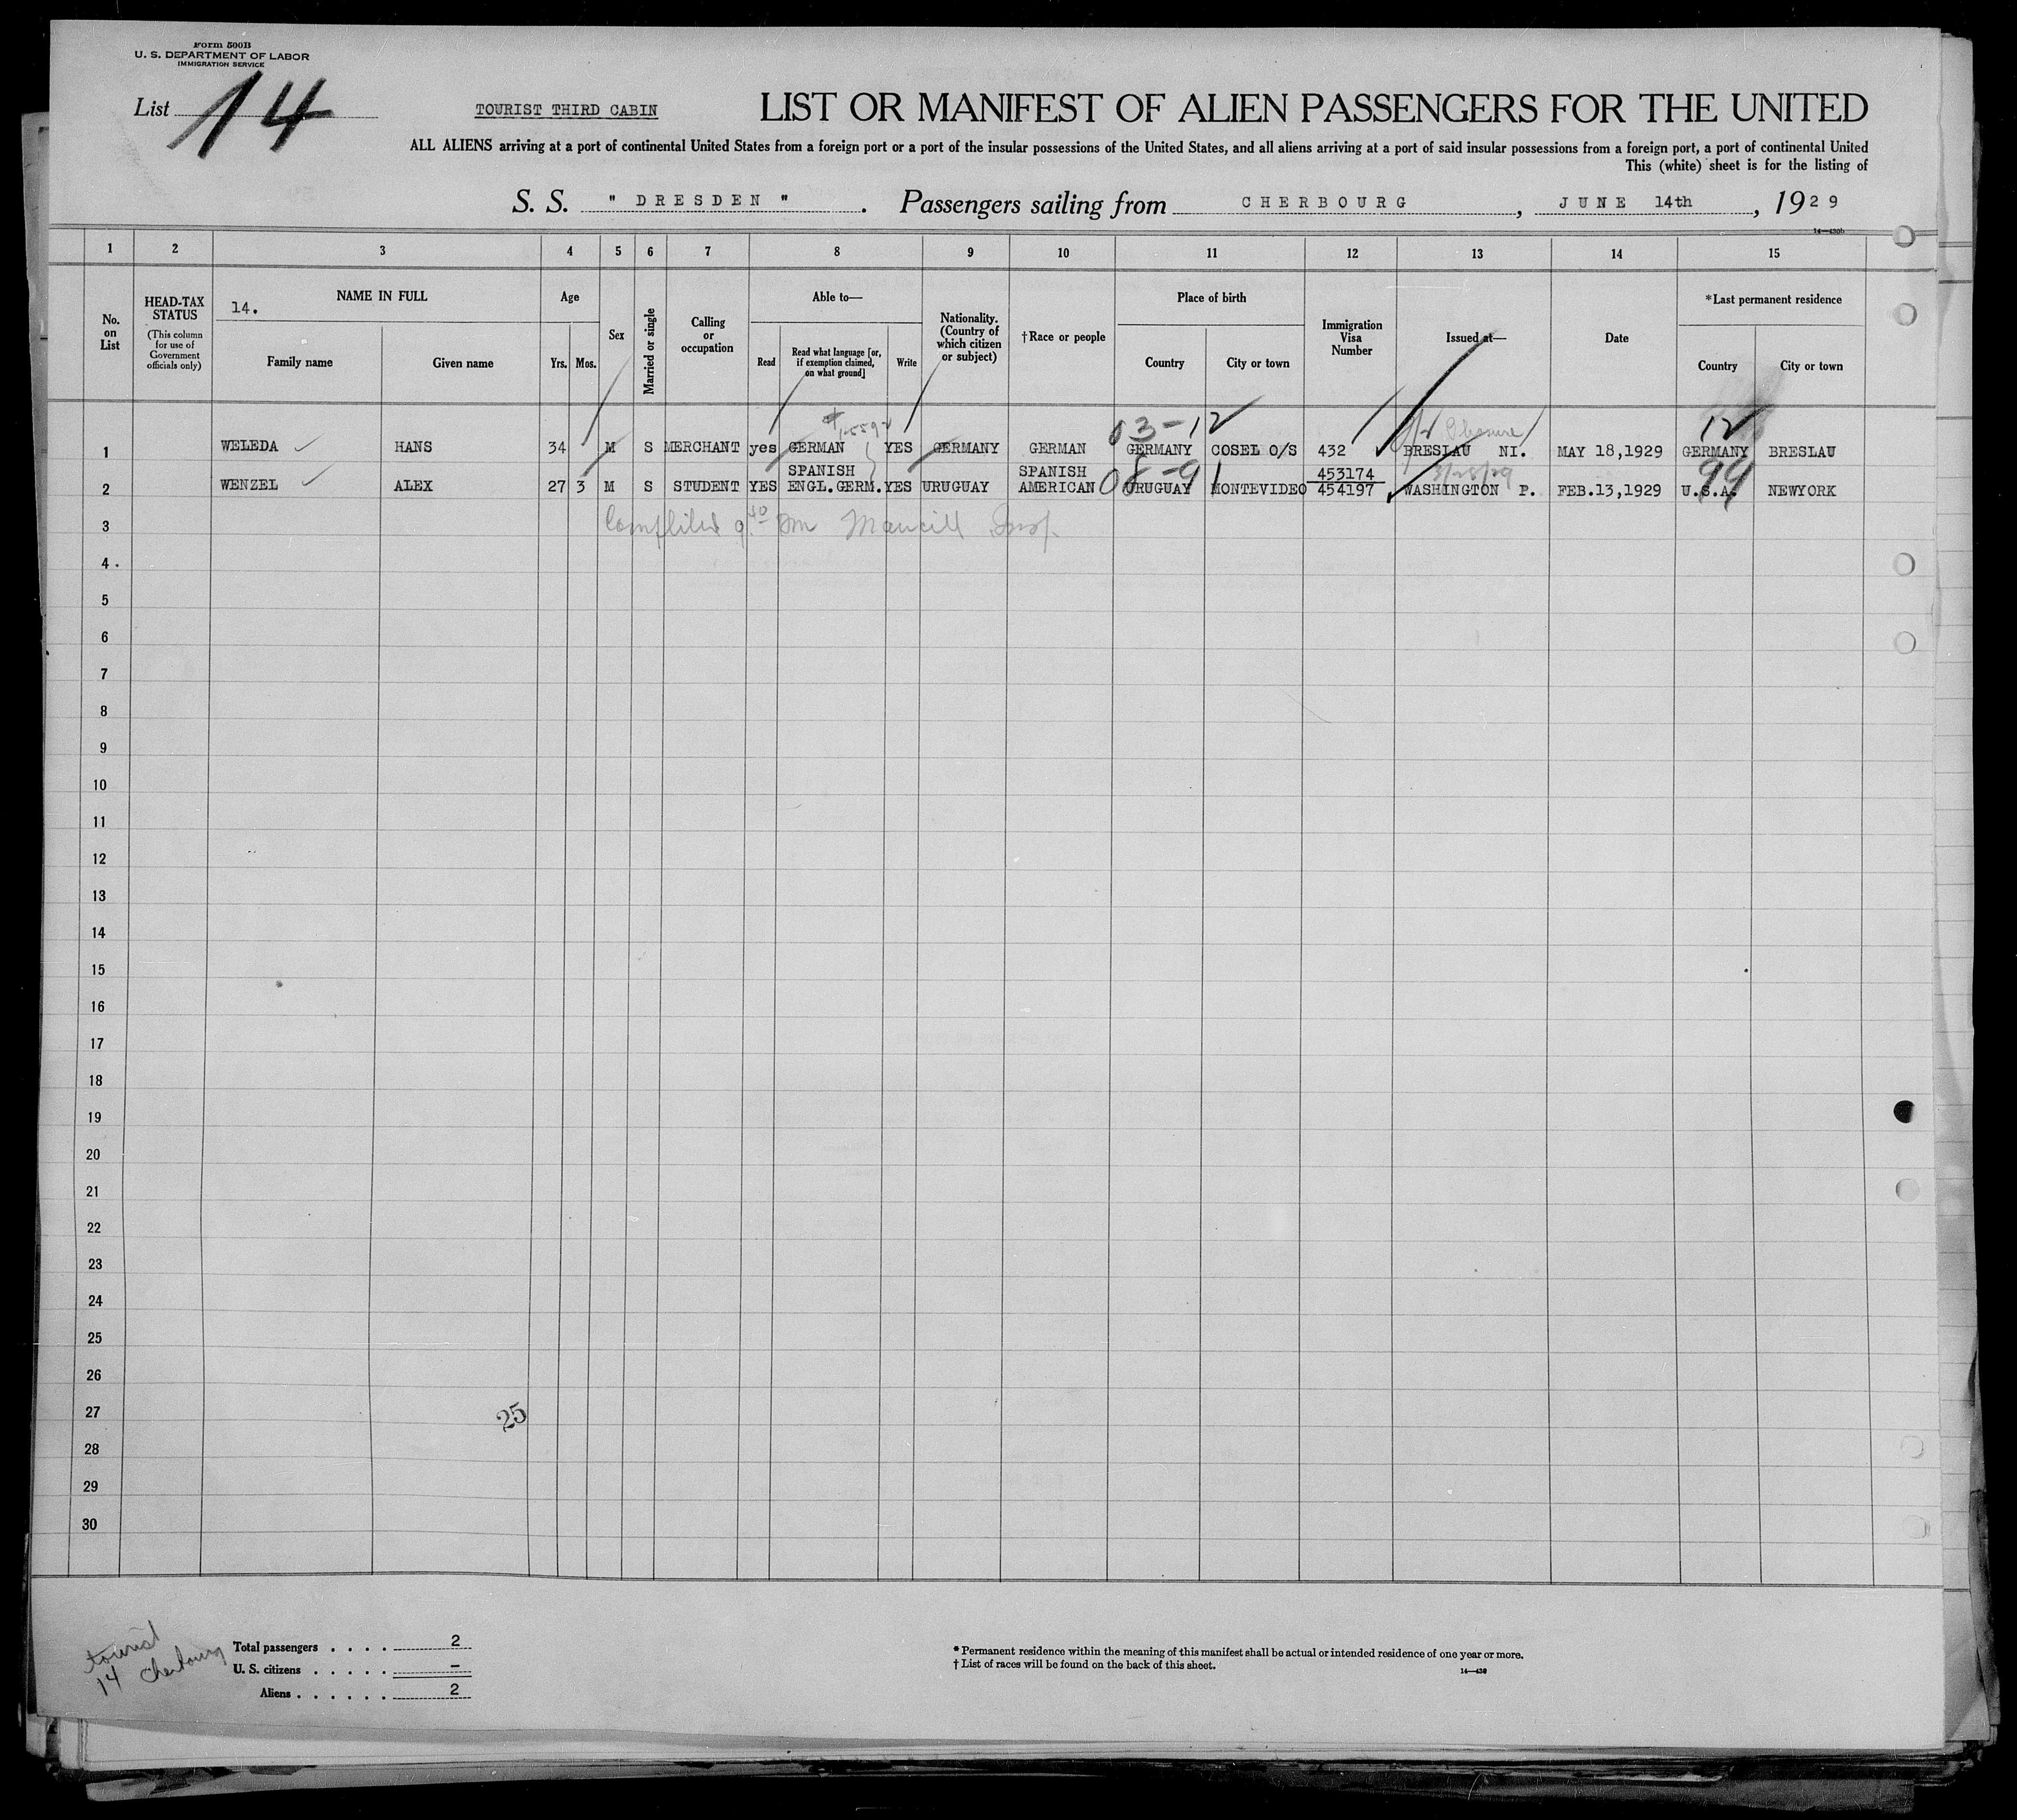 Form 500B
U. S. DEPARTMENT OF LABOR
IMMIGRATION SERVICE
List 14
TOURIST THIRD CABIN
LIST OR MANIFEST OF ALIEN PASSENGERS FOR THE UNITED
ALL ALIENS arriving at a port of continental United States from a foreign port or a port of the insular possessions of the United States, and all aliens arriving at a port of said insular possessions from a foreign port, a port of continental United
This (white) sheet is for the listing of
S. S. " DRESDEN ". Passengers sailing from CHERBOURG, JUNE 14th, 1929
14—430b
1 2 3 4 5 6 7 8 9 10 11 12 13 14 15
No. on List
HEAD-TAX STATUS
(This column for use of Government officials only)
14. NAME IN FULL
Family name Given name
Age
Yrs. Mos.
Sex
Married or single
Calling or occupation
Able to—
Read
Read what language [or, if exemption claimed, on what ground]
Write
Nationality. (Country of which citizen or subject)
†Race or people
Place of birth
Country City or town
Immigration Visa Number
Issued at—
Date
*Last permanent residence
Country City or town
03-12 12
1 WELEDA HANS 34 M S MERCHANT yes GERMAN YES GERMANY GERMAN GERMANY COSEL O/S 432 BRESLAU NI. MAY 18,1929 GERMANY BRESLAU
SPANISH SPANISH 08-91 453174 99
2 WENZEL ALEX 27 3 M S STUDENT YES ENGL.GERM. YES URUGUAY AMERICAN URUGUAY MONTEVIDEO 454197 WASHINGTON P. FEB.13,1929 U.S.A. NEWYORK
3
4
5
6
7
8
9
10
11
12
13
14
15
16
17
18
19
20
21
22
23
24
25
26
27
25
28
29
30
tourist
14 Cherbourg
Total passengers . . . . 2
U. S. citizens . . . . . —
Aliens . . . . . . 2
* Permanent residence within the meaning of this manifest shall be actual or intended residence of one year or more.
† List of races will be found on the back of this sheet.
14—430